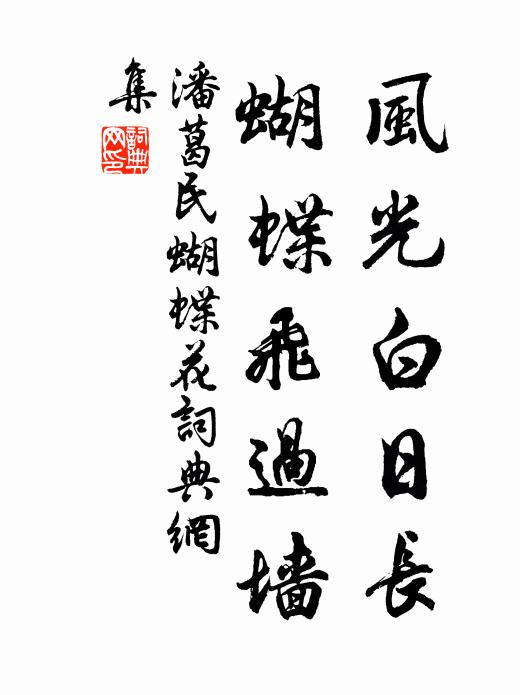 風光白日長
蝴蝶飛過墙
潘葛民蝴蝶花詞典網
集
詞典网印